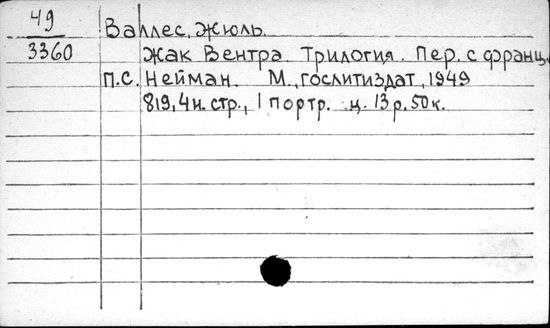 49 Валлес, Жюль.
3360 Жак Вентра. Трилогия. Пер. с франц.
П.С. Нейман. М., Гослитиздат, 1949
819, 4 н. стр., 1 портр. ц. 13 р. 50 к.